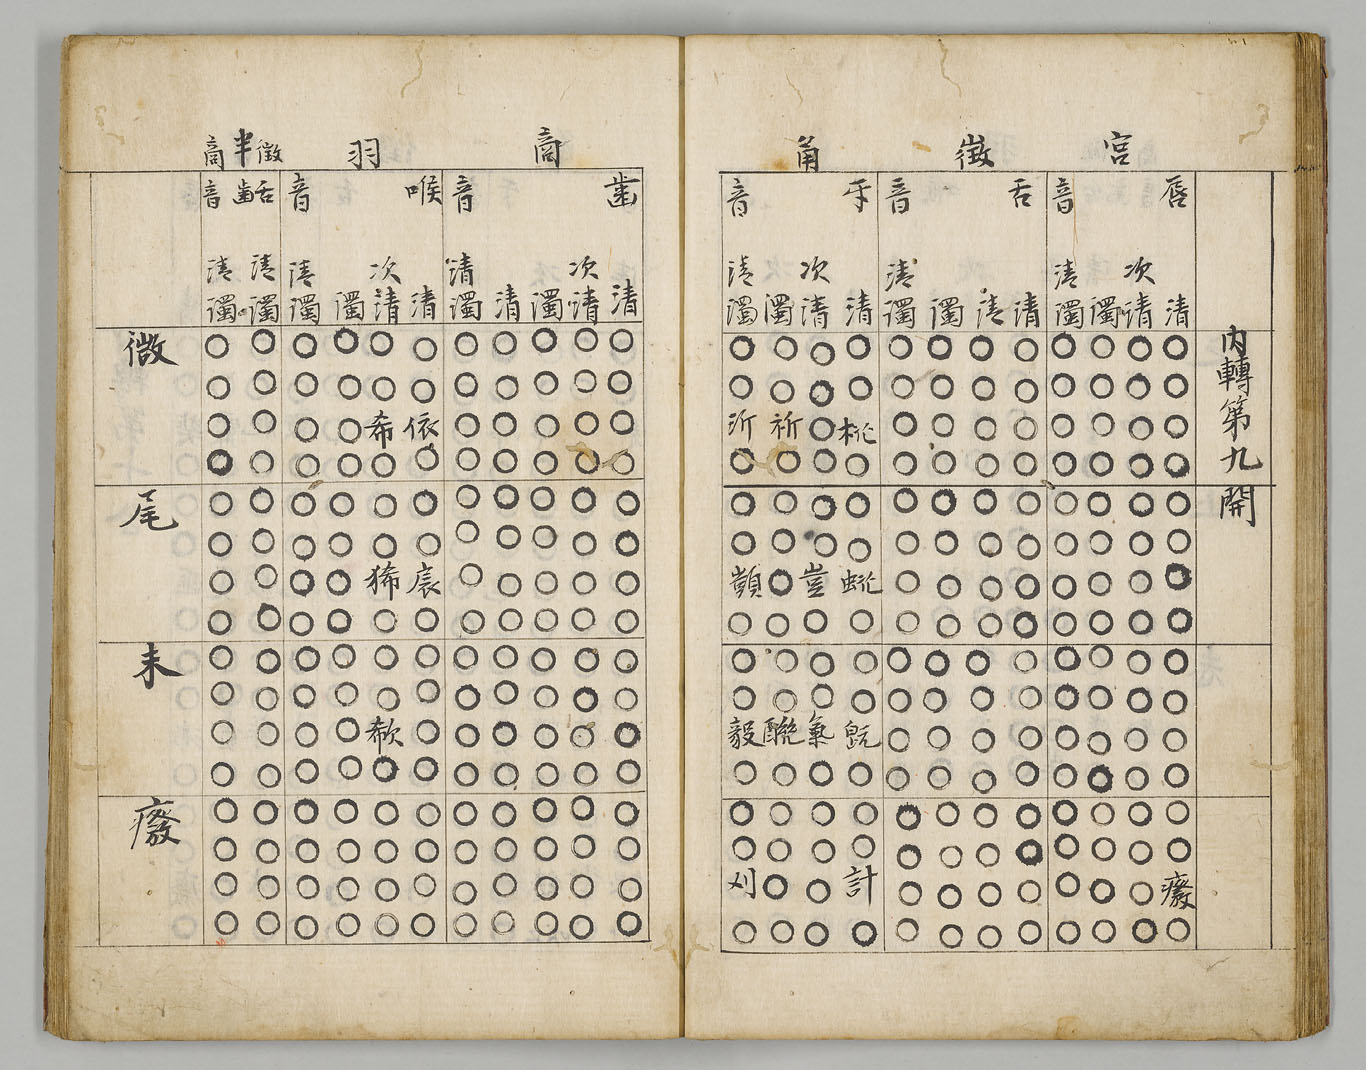 內轉第九開
宮 徵 角
唇音 舌音 牙音
清 次清 濁 清濁 清 清 濁 清濁 清 次清 濁 清濁
祈 沂
豈 顗
既 氣 毅
癈 計 刈
商 羽 徵半商
齒音 喉音 舌齒音
清 次清 濁 清 清濁 清 次清 濁 清濁 清濁 清濁
依 希 微
扆 狶 尾
欷 未
癈